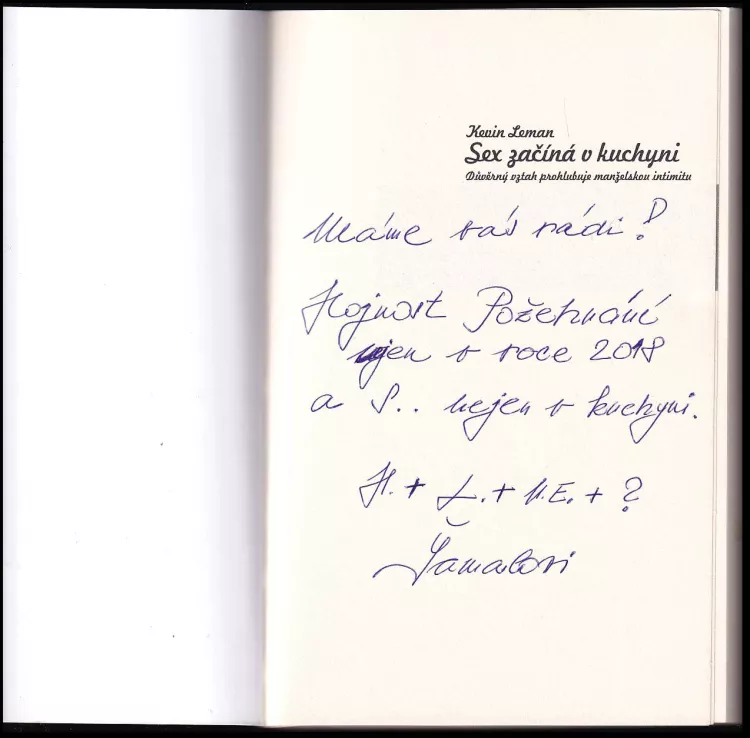 Kevin Leman
Sex začíná v kuchyni
Důvěrný vztah prohlubuje manželskou intimitu
Máme vás rádi!
Hojnost Požehnání
nejen v roce 2018
a S.. nejen v kuchyni.
H. + L. + M.E. + ?